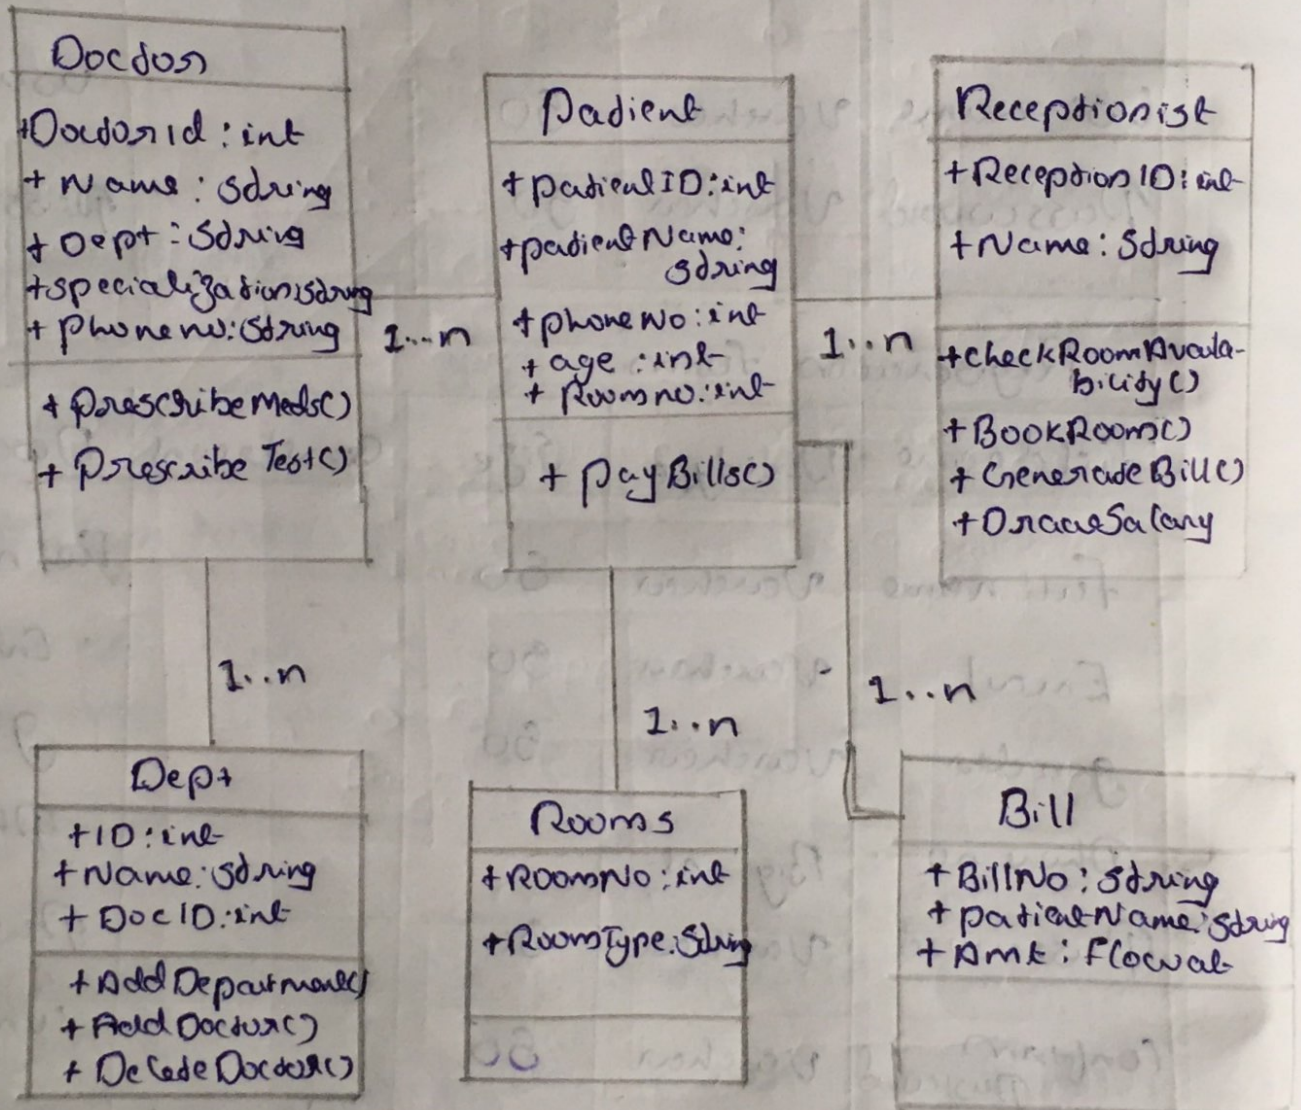 Doctor
+DoctorId : int
+ Name : String
+ Dept : String
+specialization:string
+ Phone no:String
+ PrescribeMeds()
+ Prescribe Test()
Patient
+ patientID:int
+patientName:
string
+phoneNo:int
+ age : int
+ Roomno:int
+ payBills()
Receptionist
+ReceptionID:int
+Name: String
+checkRoomAvaila-
bility()
+BookRoom()
+ Generate Bill()
+DrawSalary
1...n
1..n
1..n
1..n
1..n
Dept
+ID:int
+Name:String
+ DocID:int
+Add Department()
+Add Doctor()
+ Delete Doctor()
Rooms
+RoomNo:int
+RoomType:String
Bill
+BillNo: String
+patientName:String
+Amt: